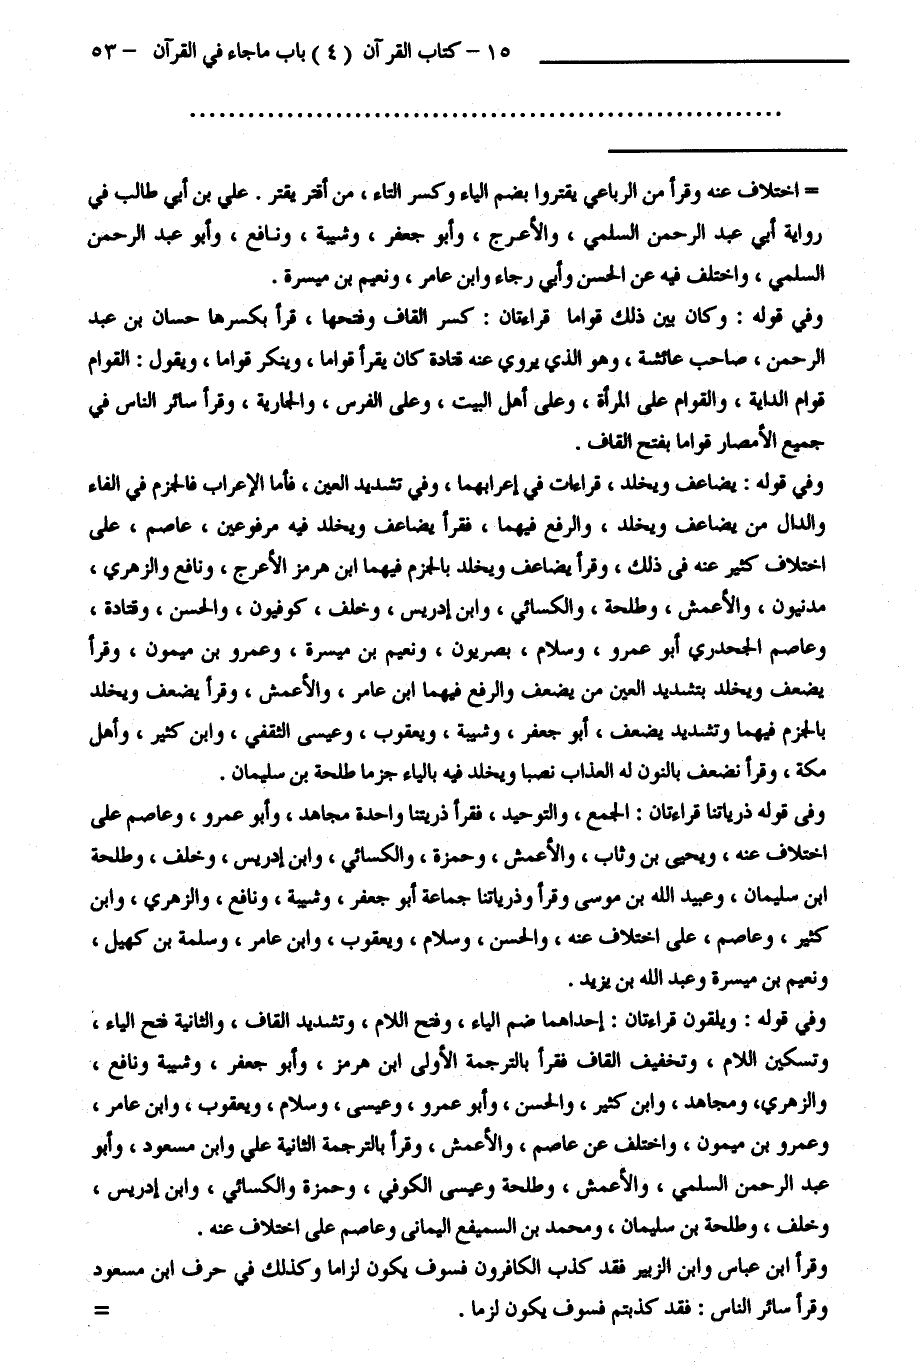 ١٥ – كتاب القرآن ( ٤ ) باب ماجاء في القرآن – ٥٣
............................................................
= اختلاف عنه وقرأ من الرباعي يقتروا بضم الياء وكسر التاء ، من أقتر يقتر . علي بن أبي طالب في
رواية أبي عبد الرحمن السلمي ، والأعرج ، وأبو جعفر ، وشيبة ، ونافع ، وأبو عبد الرحمن
السلمي ، واختلف فيه عن الحسن وأبي رجاء وابن عامر ، ونعيم بن ميسرة .
وفي قوله : وكان بين ذلك قواما قراءتان : كسر القاف وفتحها ، قرأ بكسرها حسان بن عبد
الرحمن ، صاحب عائشة ، وهو الذي يروي عنه قتادة كان يقرأ قواما ، وينكر قواما ، ويقول : القوام
قوام الداية ، والقوام على المرأة ، وعلى أهل البيت ، وعلى الفرس ، والجارية ، وقرأ سائر الناس في
جميع الأمصار قواما بفتح القاف .
وفي قوله : يضاعف ويخلد ، قراءات في إعرابهما ، وفي تشديد العين ، فأما الإعراب فالجزم في الفاء
والدال من يضاعف ويخلد ، والرفع فيهما ، فقرأ يضاعف ويخلد فيه مرفوعين ، عاصم ، على
اختلاف كثير عنه فى ذلك ، وقرأ يضاعف ويخلد بالجزم فيهما ابن هرمز الأعرج ، ونافع والزهري ،
مدنيون ، والأعمش ، وطلحة ، والكسائي ، وابن إدريس ، وخلف ، كوفيون ، والحسن ، وقتادة ،
وعاصم الجحدري أبو عمرو ، وسلام ، بصريون ، ونعيم بن ميسرة ، وعمرو بن ميمون ، وقرأ
يضعف ويخلد بتشديد العين من يضعف والرفع فيهما ابن عامر ، والأعمش ، وقرأ يضعف ويخلد
بالجزم فيهما وتشديد يضعف ، أبو جعفر ، وشيبة ، ويعقوب ، وعيسى الثقفي ، وابن كثير ، وأهل
مكة ، وقرأ نضعف بالنون له العذاب نصبا ويخلد فيه بالياء جزما طلحة بن سليمان .
وفى قوله ذرياتنا قراءتان : الجمع ، والتوحيد ، فقرأ ذريتنا واحدة مجاهد ، وأبو عمرو ، وعاصم على
اختلاف عنه ، ويحيى بن وثاب ، والأعمش ، وحمزة ، والكسائي ، وابن إدريس ، وخلف ، وطلحة
ابن سليمان ، وعبيد الله بن موسى وقرأ وذرياتنا جماعة أبو جعفر ، وشيبة ، ونافع ، والزهري ، وابن
كثير ، وعاصم ، على اختلاف عنه ، والحسن ، وسلام ، ويعقوب ، وابن عامر ، وسلمة بن كهيل ،
ونعيم بن ميسرة وعبد الله بن يزيد .
وفي قوله : ويلقون قراءتان : إحداهما ضم الياء ، وفتح اللام ، وتشديد القاف ، والثانية فتح الياء ،
وتسكين اللام ، وتخفيف القاف فقرأ بالترجمة الأولى ابن هرمز ، وأبو جعفر ، وشيبة ونافع ،
والزهري، ومجاهد ، وابن كثير ، والحسن ، وأبو عمرو ، وعيسى ، وسلام ، ويعقوب ، وابن عامر ،
وعمرو بن ميمون ، واختلف عن عاصم ، والأعمش ، وقرأ بالترجمة الثانية علي وابن مسعود ، وأبو
عبد الرحمن السلمي ، والأعمش ، وطلحة وعيسى الكوفي ، وحمزة والكسائي ، وابن إدريس ،
وخلف ، وطلحة بن سليمان ، ومحمد بن السميفع اليمانى وعاصم على اختلاف عنه .
وقرأ ابن عباس وابن الزبير فقد كذب الكافرون فسوف يكون لزاما وكذلك في حرف ابن مسعود
وقرأ سائر الناس : فقد كذبتم فسوف يكون لزما . =